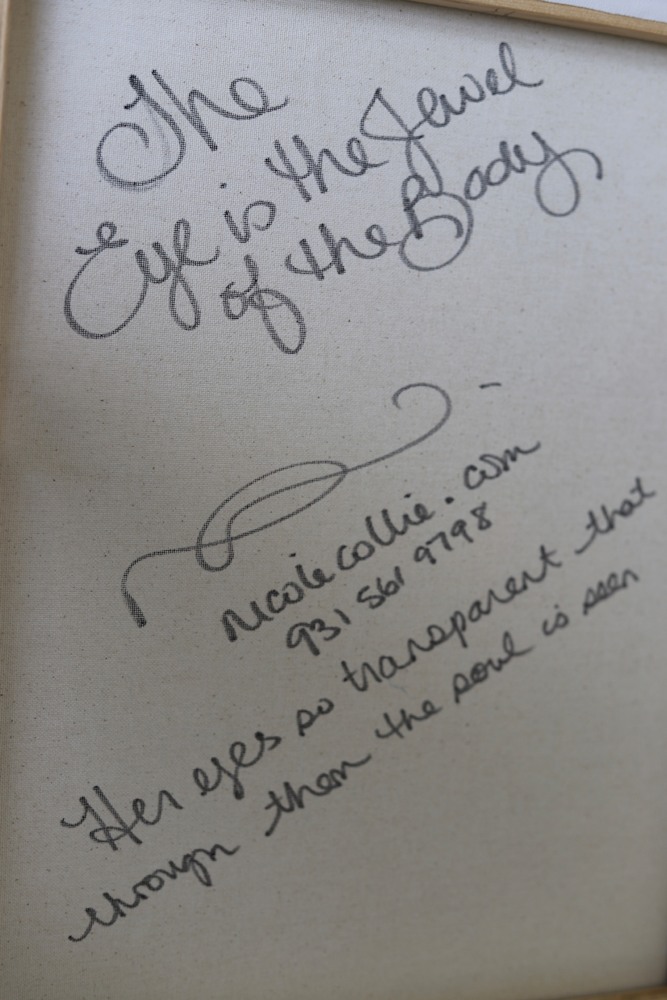 The
Eye is the Jewel
of the Body
nicolecollie.com
931 561 9798
Her eyes so transparent that
through them the soul is seen